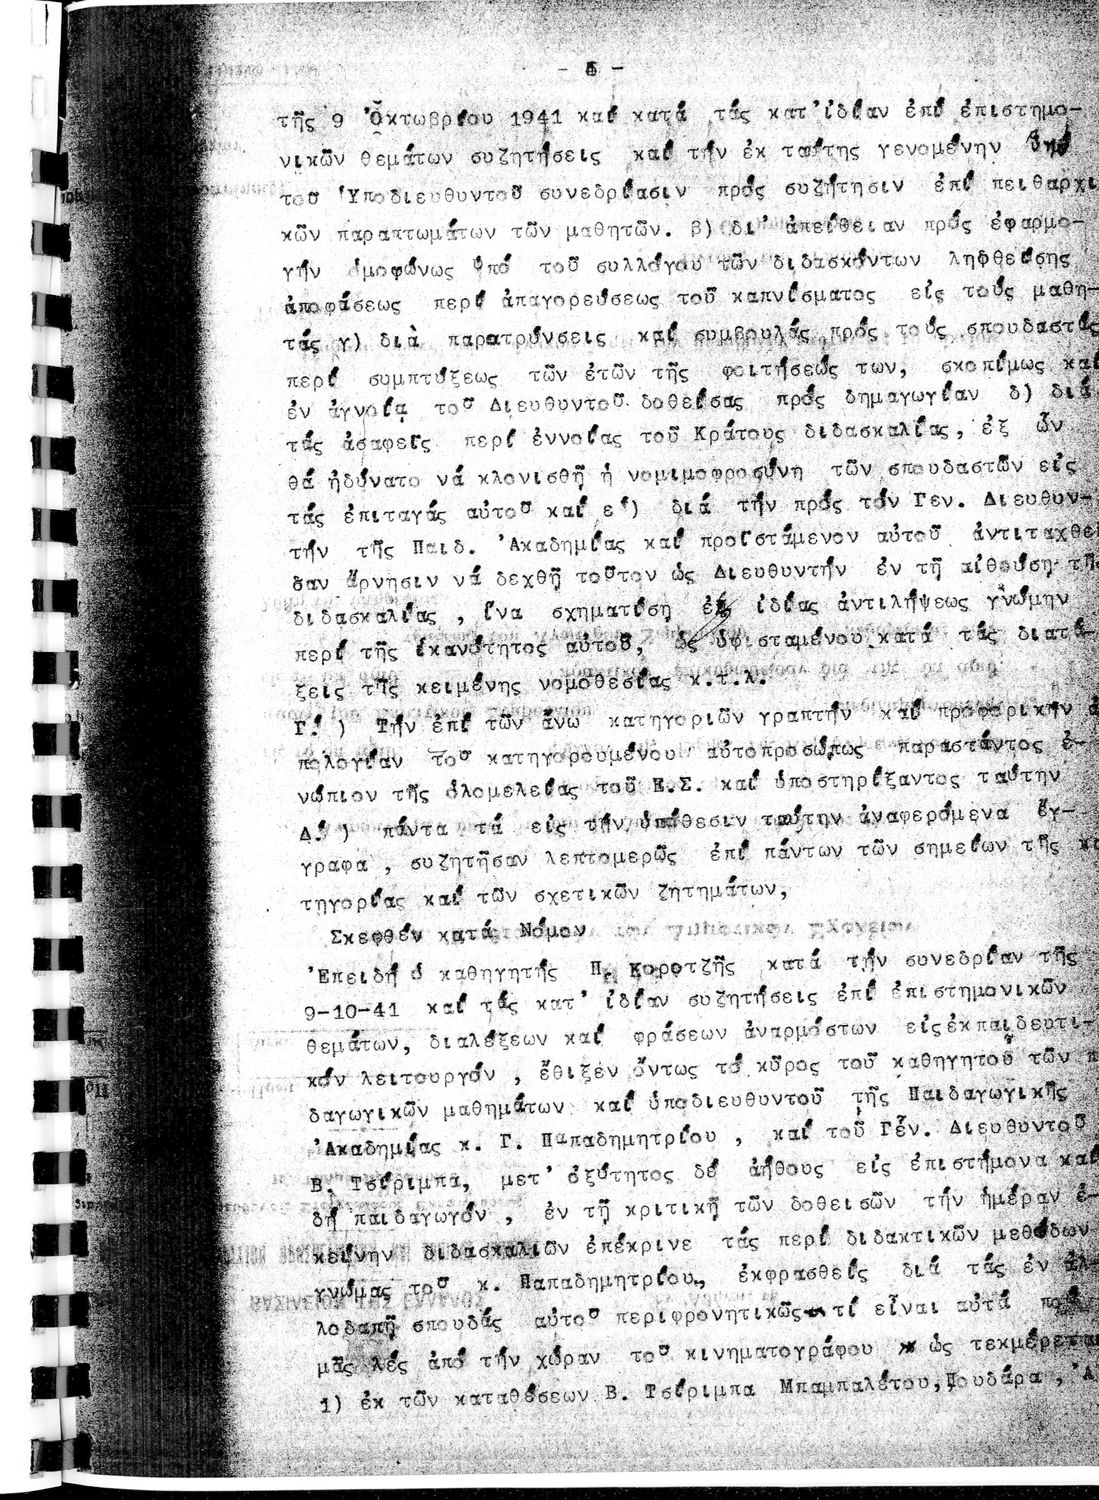 τῆς 9 Ὀκτωβρίου 1941 καί κατά τάς κατ' ἰδίαν ἐπί ἐπιστημο-
νικῶν θεμάτων συζητήσεις καί τήν ἐκ ταύτης γενομένην ὑπό
τοῦ Ὑποδιευθυντοῦ συνεδρίασιν πρός συζήτησιν ἐπί πειθαρχι
κῶν παραπτωμάτων τῶν μαθητῶν. β) δι' ἀπείθειαν πρός ἐφαρμο-
γήν ὁμοφώνως ὑπό τοῦ συλλόγου τῶν διδασκόντων ληφθείσης
ἀποφάσεως περί ἀπαγορεύσεως τοῦ καπνίσματος εἰς τούς μαθη-
τάς γ) διὰ παρατρύνσεις καί συμβουλάς πρός τούς σπουδαστάς
περί συμπτύξεως τῶν ἐτῶν τῆς φοιτήσεώς των, σκοπίμως καί
ἐν ἀγνοίᾳ τοῦ Διευθυντοῦ δοθείσας πρός δημαγωγίαν δ) διά
τάς ἀσαφεῖς περί ἐννοίας τοῦ Κράτους διδασκαλίας, ἐξ ὧν
θά ἠδύνατο νά κλονισθῇ ἡ νομιμοφροσύνη τῶν σπουδαστῶν εἰς
τάς ἐπιταγάς αὐτοῦ καί ε') διά τήν πρός τόν Γεν. Διευθυν-
τήν τῆς Παιδ. Ἀκαδημίας καί προϊστάμενον αὐτοῦ ἀντιταχθεῖ
σαν ἄρνησιν νά δεχθῇ τοῦτον ὡς Διευθυντήν ἐν τῇ αἰθούσῃ τῆς
διδασκαλίας , ἵνα σχηματίσῃ ἐξ ἰδίας ἀντιλήψεως γνώμην
περί τῆς ἱκανότητος αὐτοῦ, ὡς ὑφισταμένου κατά τάς διατά-
ξεις τῆς κειμένης νομοθεσίας κ.τ.λ.
Γ.') Τήν ἐπί τῶν ἄνω κατηγοριῶν γραπτήν καί προφορικήν ἀ
πολογίαν τοῦ κατηγορουμένου αὐτοπροσώπως παραστάντος ἐ-
νώπιον τῆς ὁλομελείας τοῦ Ε.Σ. καί ὑποστηρίξαντος ταύτην
Δ.') πάντα τά εἰς τήν ὑπόθεσιν ταύτην ἀναφερόμενα ἔγ-
γραφα , συζητῆσαν λεπτομερῶς ἐπί πάντων τῶν σημείων τῆς κα
τηγορίας καί τῶν σχετικῶν ζητημάτων,
Σκεφθέν κατά Νόμον
Ἐπειδή ὁ καθηγητής Π. Κορτζῆς κατά τήν συνεδρίαν τῆς
9-10-41 καί τάς κατ' ἰδίαν συζητήσεις ἐπί ἐπιστημονικῶν
θεμάτων, διαλέξεων καί φράσεων ἀναρμόστων εἰς ἐκπαιδευτι-
κόν λειτουργόν , ἔθιξεν ὄντως τό κῦρος τοῦ καθηγητοῦ τῶν π
δαγωγικῶν μαθημάτων καί ὑποδιευθυντοῦ τῆς Παιδαγωγικῆς
Ἀκαδημίας κ. Γ. Παπαδημητρίου , καί τοῦ Γεν. Διευθυντοῦ
Β. Τσίριμπα, μετ' ὀξύτητος δέ ἀήθους εἰς ἐπιστήμονα καί
δή παιδαγωγόν , ἐν τῇ κριτικῇ τῶν δοθεισῶν τήν ἡμέραν ἐ-
κείνην διδασκαλιῶν ἐπέκρινε τάς περί διδακτικῶν μεθόδων
γνώμας τοῦ κ. Παπαδημητρίου, ἐκφρασθείς διά τάς ἐν ἀλ-
λοδαπῇ σπουδάς αὐτοῦ περιφρονητικῶς τί εἶναι αὐτά πού
μᾶς λές ἀπό τήν χώραν τοῦ κινηματογράφου ὡς τεκμέρεται
1) ἐκ τῶν καταθέσεων Β. Τσίριμπα Μπαμπαλέτου, Πουδάρα , Ἀ